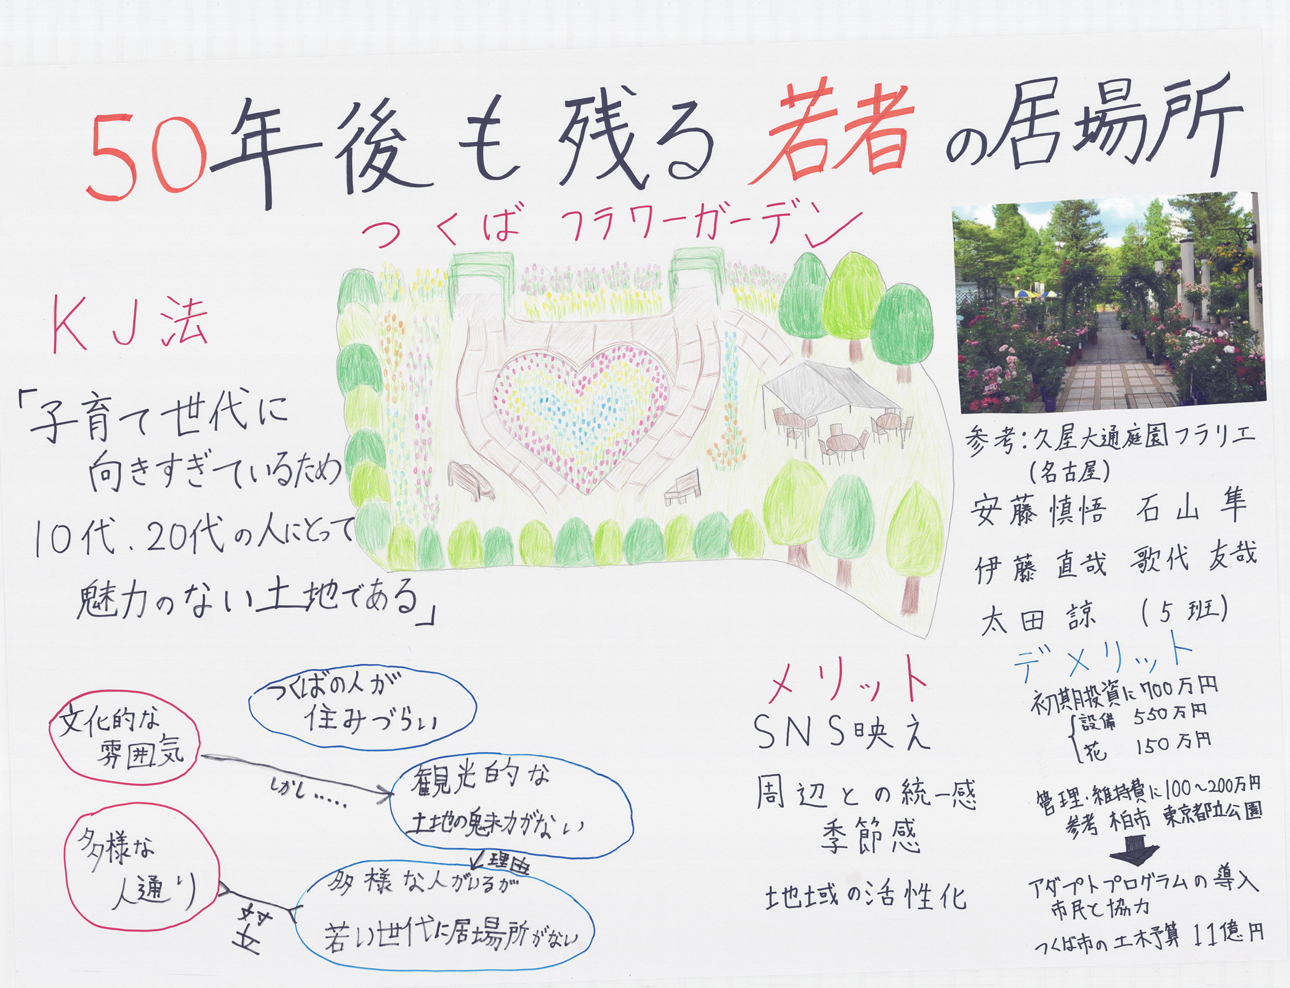 50年後も残る若者の居場所
つくばフラワーガーデン
KJ法
「子育て世代に
向きすぎているため
10代、20代の人にとって
魅力のない土地である」
文化的な
雰囲気
つくばの人が
住みづらい
しかし.....
観光的な
土地の魅力がない
理由
多様な
人通り
対立
多様な人がいるが
若い世代に居場所がない
参考:久屋大通庭園フラリエ
(名古屋)
安藤慎悟 石山隼
伊藤直哉 歌代友哉
太田諒 (5班)
メリット
SNS映え
周辺との統一感
季節感
地域の活性化
デメリット
初期投資に700万円
設備 550万円
花 150万円
管理・維持費に100〜200万円
参考 柏市 東京都立公園
アダプトプログラムの導入
市民と協力
つくば市の土木予算 11億円